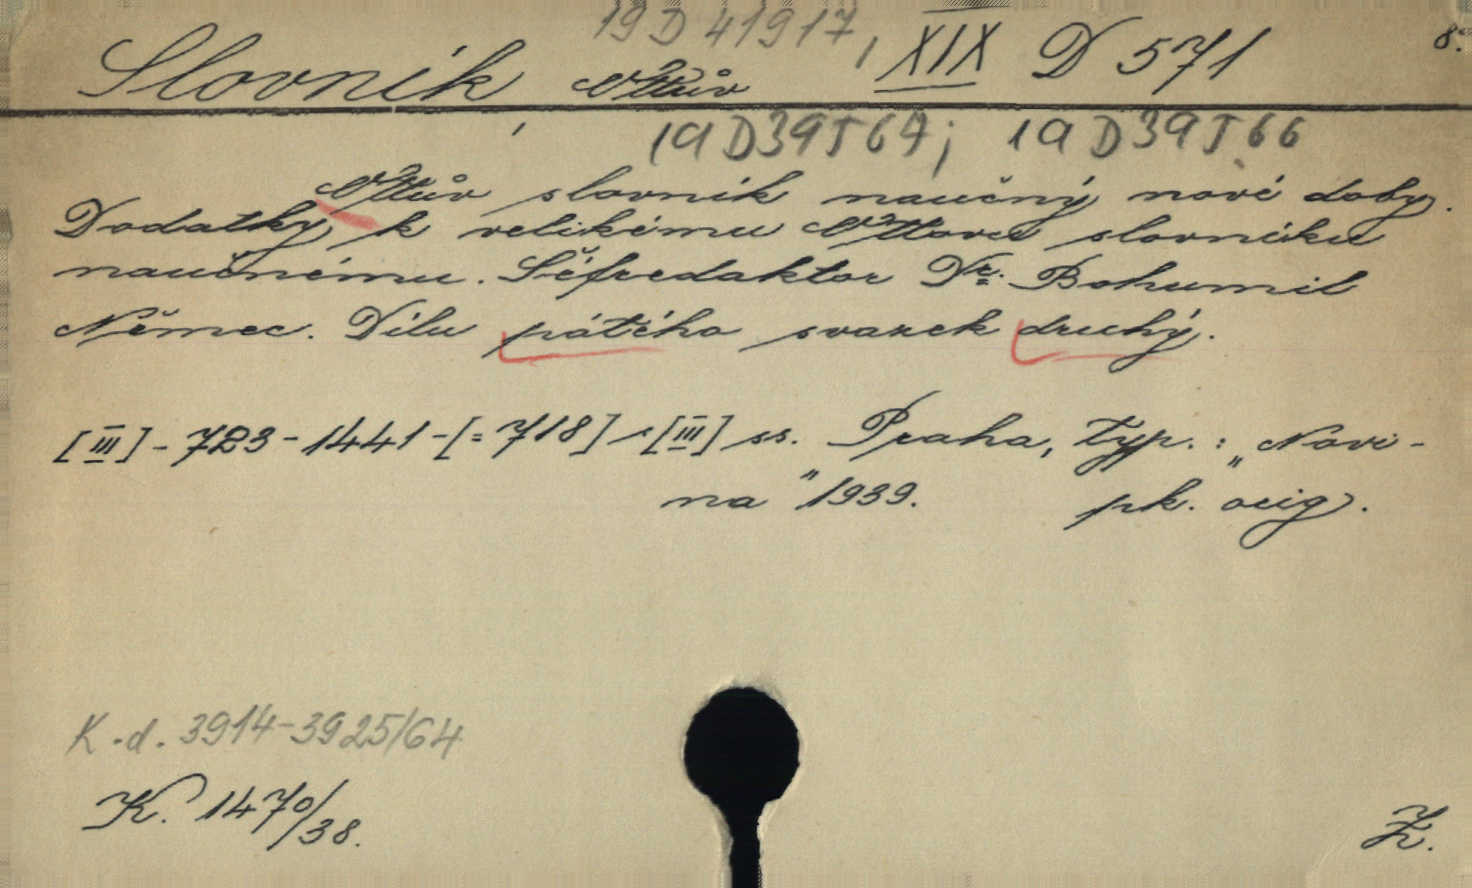 19 D 41917, XIX D 571 8°.
Slovník Ottův
19 D 39 J 67; 19 D 39 J 66
Ottův slovník naučný nové doby.
Dodatky k velikému Ottovu slovníku
naučnému. Šéfredaktor Dr. Bohumil
Němec. Dílu pátého svazek druhý.
[III] - 723 - 1441 - [= 718] - [III] ss. Praha, typ. : „Novi-
na" 1939. pk. orig.
K.d. 3914-3925/64
K. 1470/38.
Z.